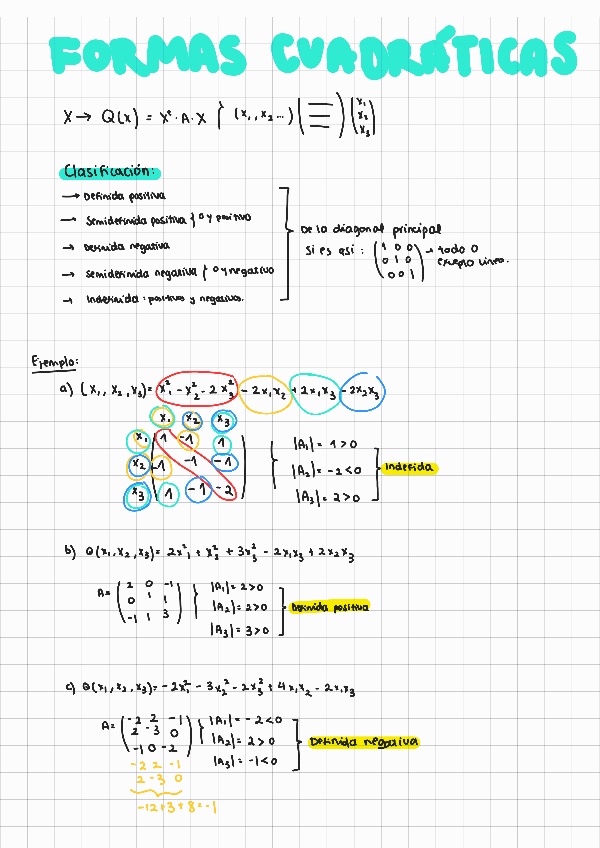 FORMAS CUADRÁTICAS
X → Q(x) = Xᵗ · A · X } (x₁, x₂ ...) ( ) (x₁ x₂ x₃)
Clasificación:
→ Definida positiva
→ Semidefinida positiva } 0 y positivo
→ Definida negativa
→ Semidefinida negativa } 0 y negativo
→ Indefinida: positivos y negativos.
De la diagonal principal
Si es así: (1 0 0
0 1 0
0 0 1) → todo 0
excepto línea.
Ejemplo:
a) (x₁, x₂, x₃) = x₁² - x₂² - 2x₃² - 2x₁x₂ + 2x₁x₃ - 2x₂x₃
x₁ x₂ x₃
x₁ 1 -1 1
x₂ -1 -1 -1
x₃ 1 -1 -2
|A₁| = 1 > 0
|A₂| = -2 < 0
|A₃| = 2 > 0
Indefida
b) Q(x₁, x₂, x₃) = 2x₁² + x₂² + 3x₃² - 2x₁x₃ + 2x₂x₃
A = (2 0 -1
0 1 1
-1 1 3)
|A₁| = 2 > 0
|A₂| = 2 > 0
|A₃| = 3 > 0
Definida positiva
c) Q(x₁, x₂, x₃) = -2x₁² - 3x₂² - 2x₃² + 4x₁x₂ - 2x₁x₃
A = (-2 2 -1
2 -3 0
-1 0 -2)
-2 2 -1
2 -3 0
-12+3+8=-1
|A₁| = -2 < 0
|A₂| = 2 > 0
|A₃| = -1 < 0
Definida negativa